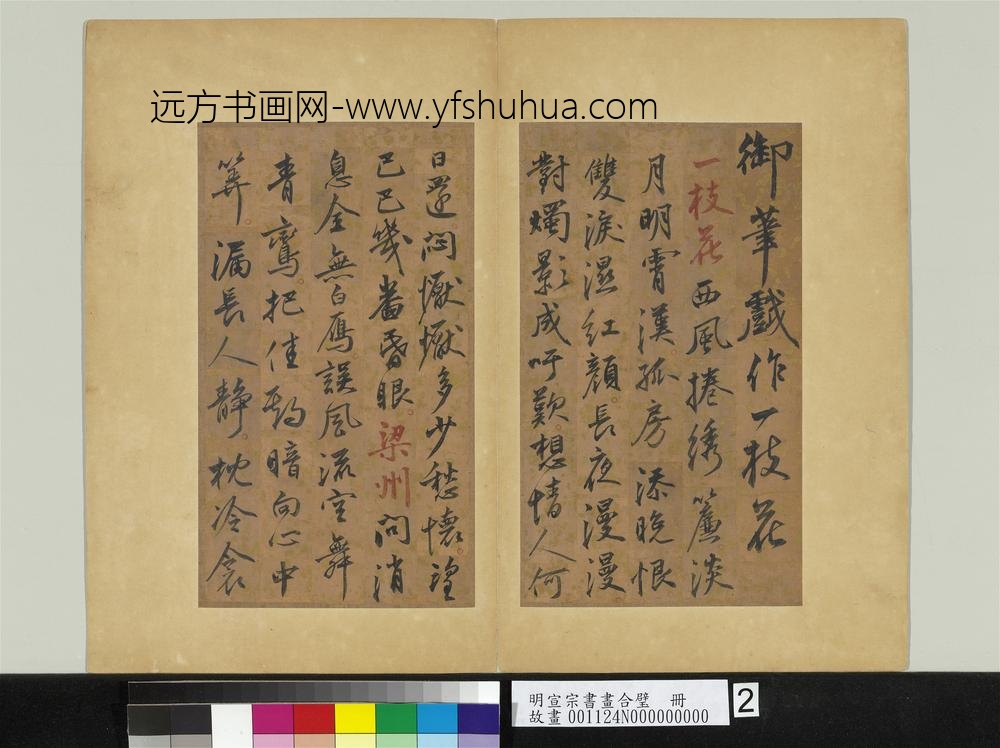 远方书画网-www.yfshuhua.com
御筆戲作一枝花
一枝花西風捲绣簾淡
月明霄漢孤房添晚恨
雙淚濕紅顏長夜漫漫
對燭影成吁歎想情人何
日還悶懨懨多少愁懷望
巴巴幾番昏眼梁州問消
息全無白雁誤風流空舞
青鸞把佳期暗向心中
筭漏長人靜枕冷衾
明宣宗書畫合璧 冊
故畫001124N000000000
2